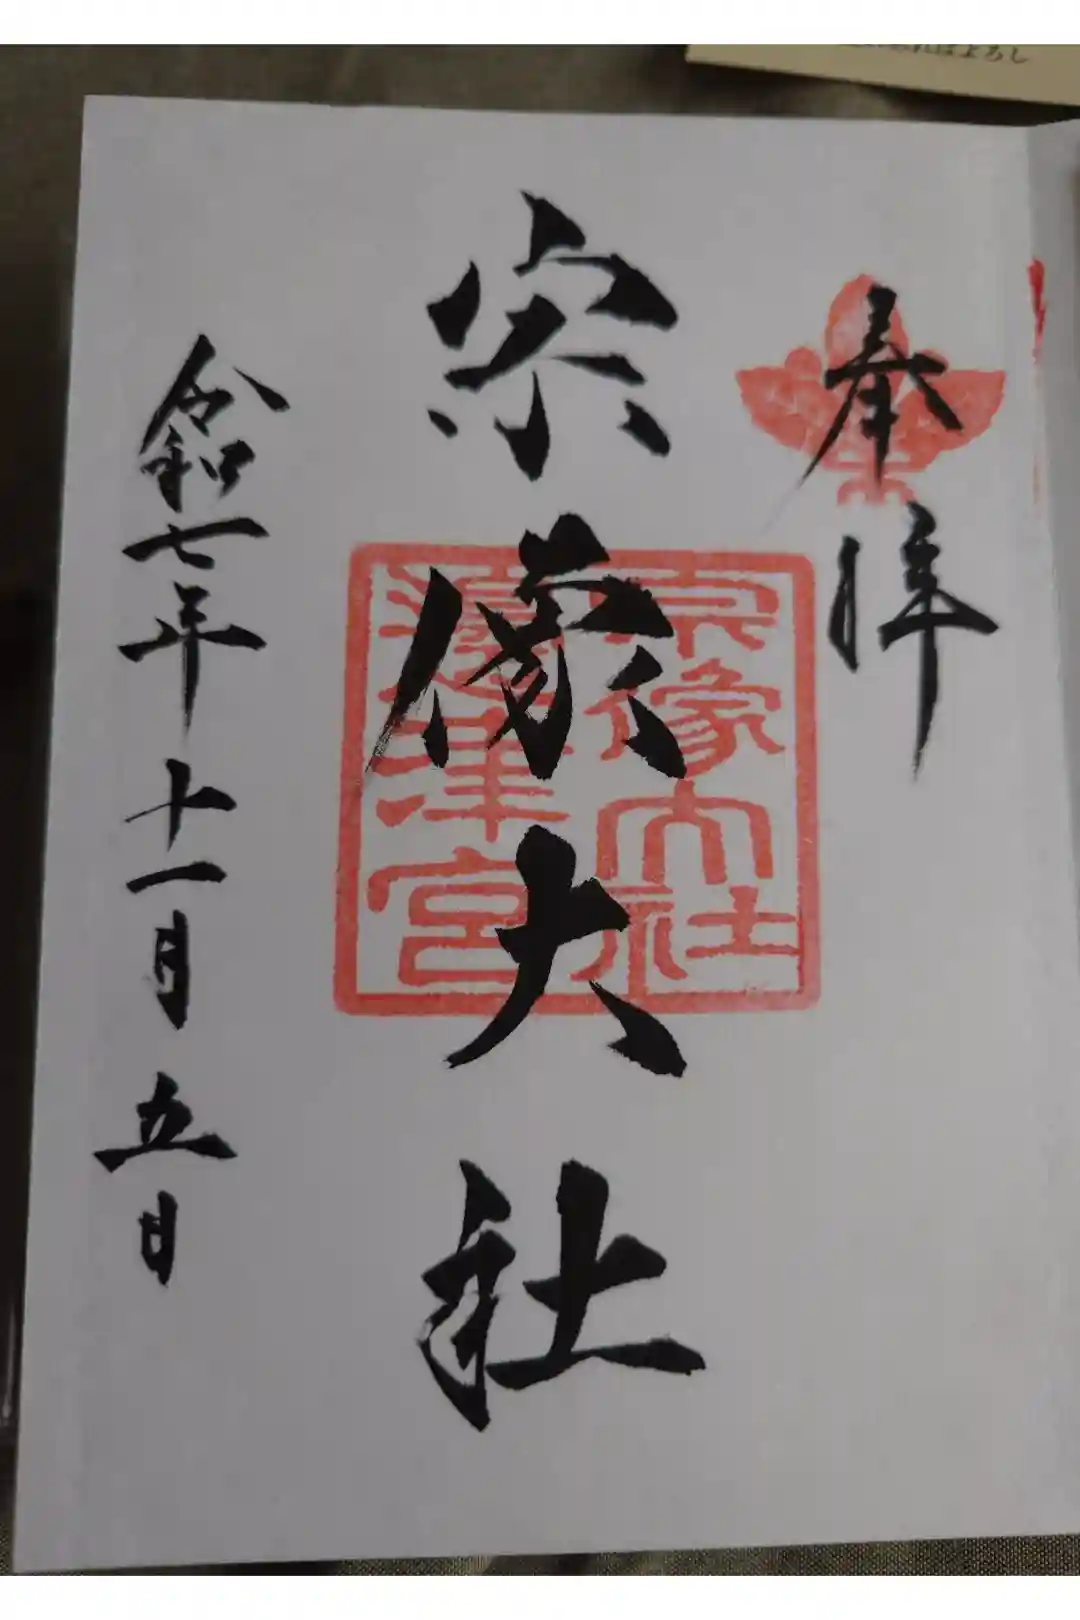 奉拝
宗像大社
宗像大社
邉津宮
令和七年十一月五日
ればよろし